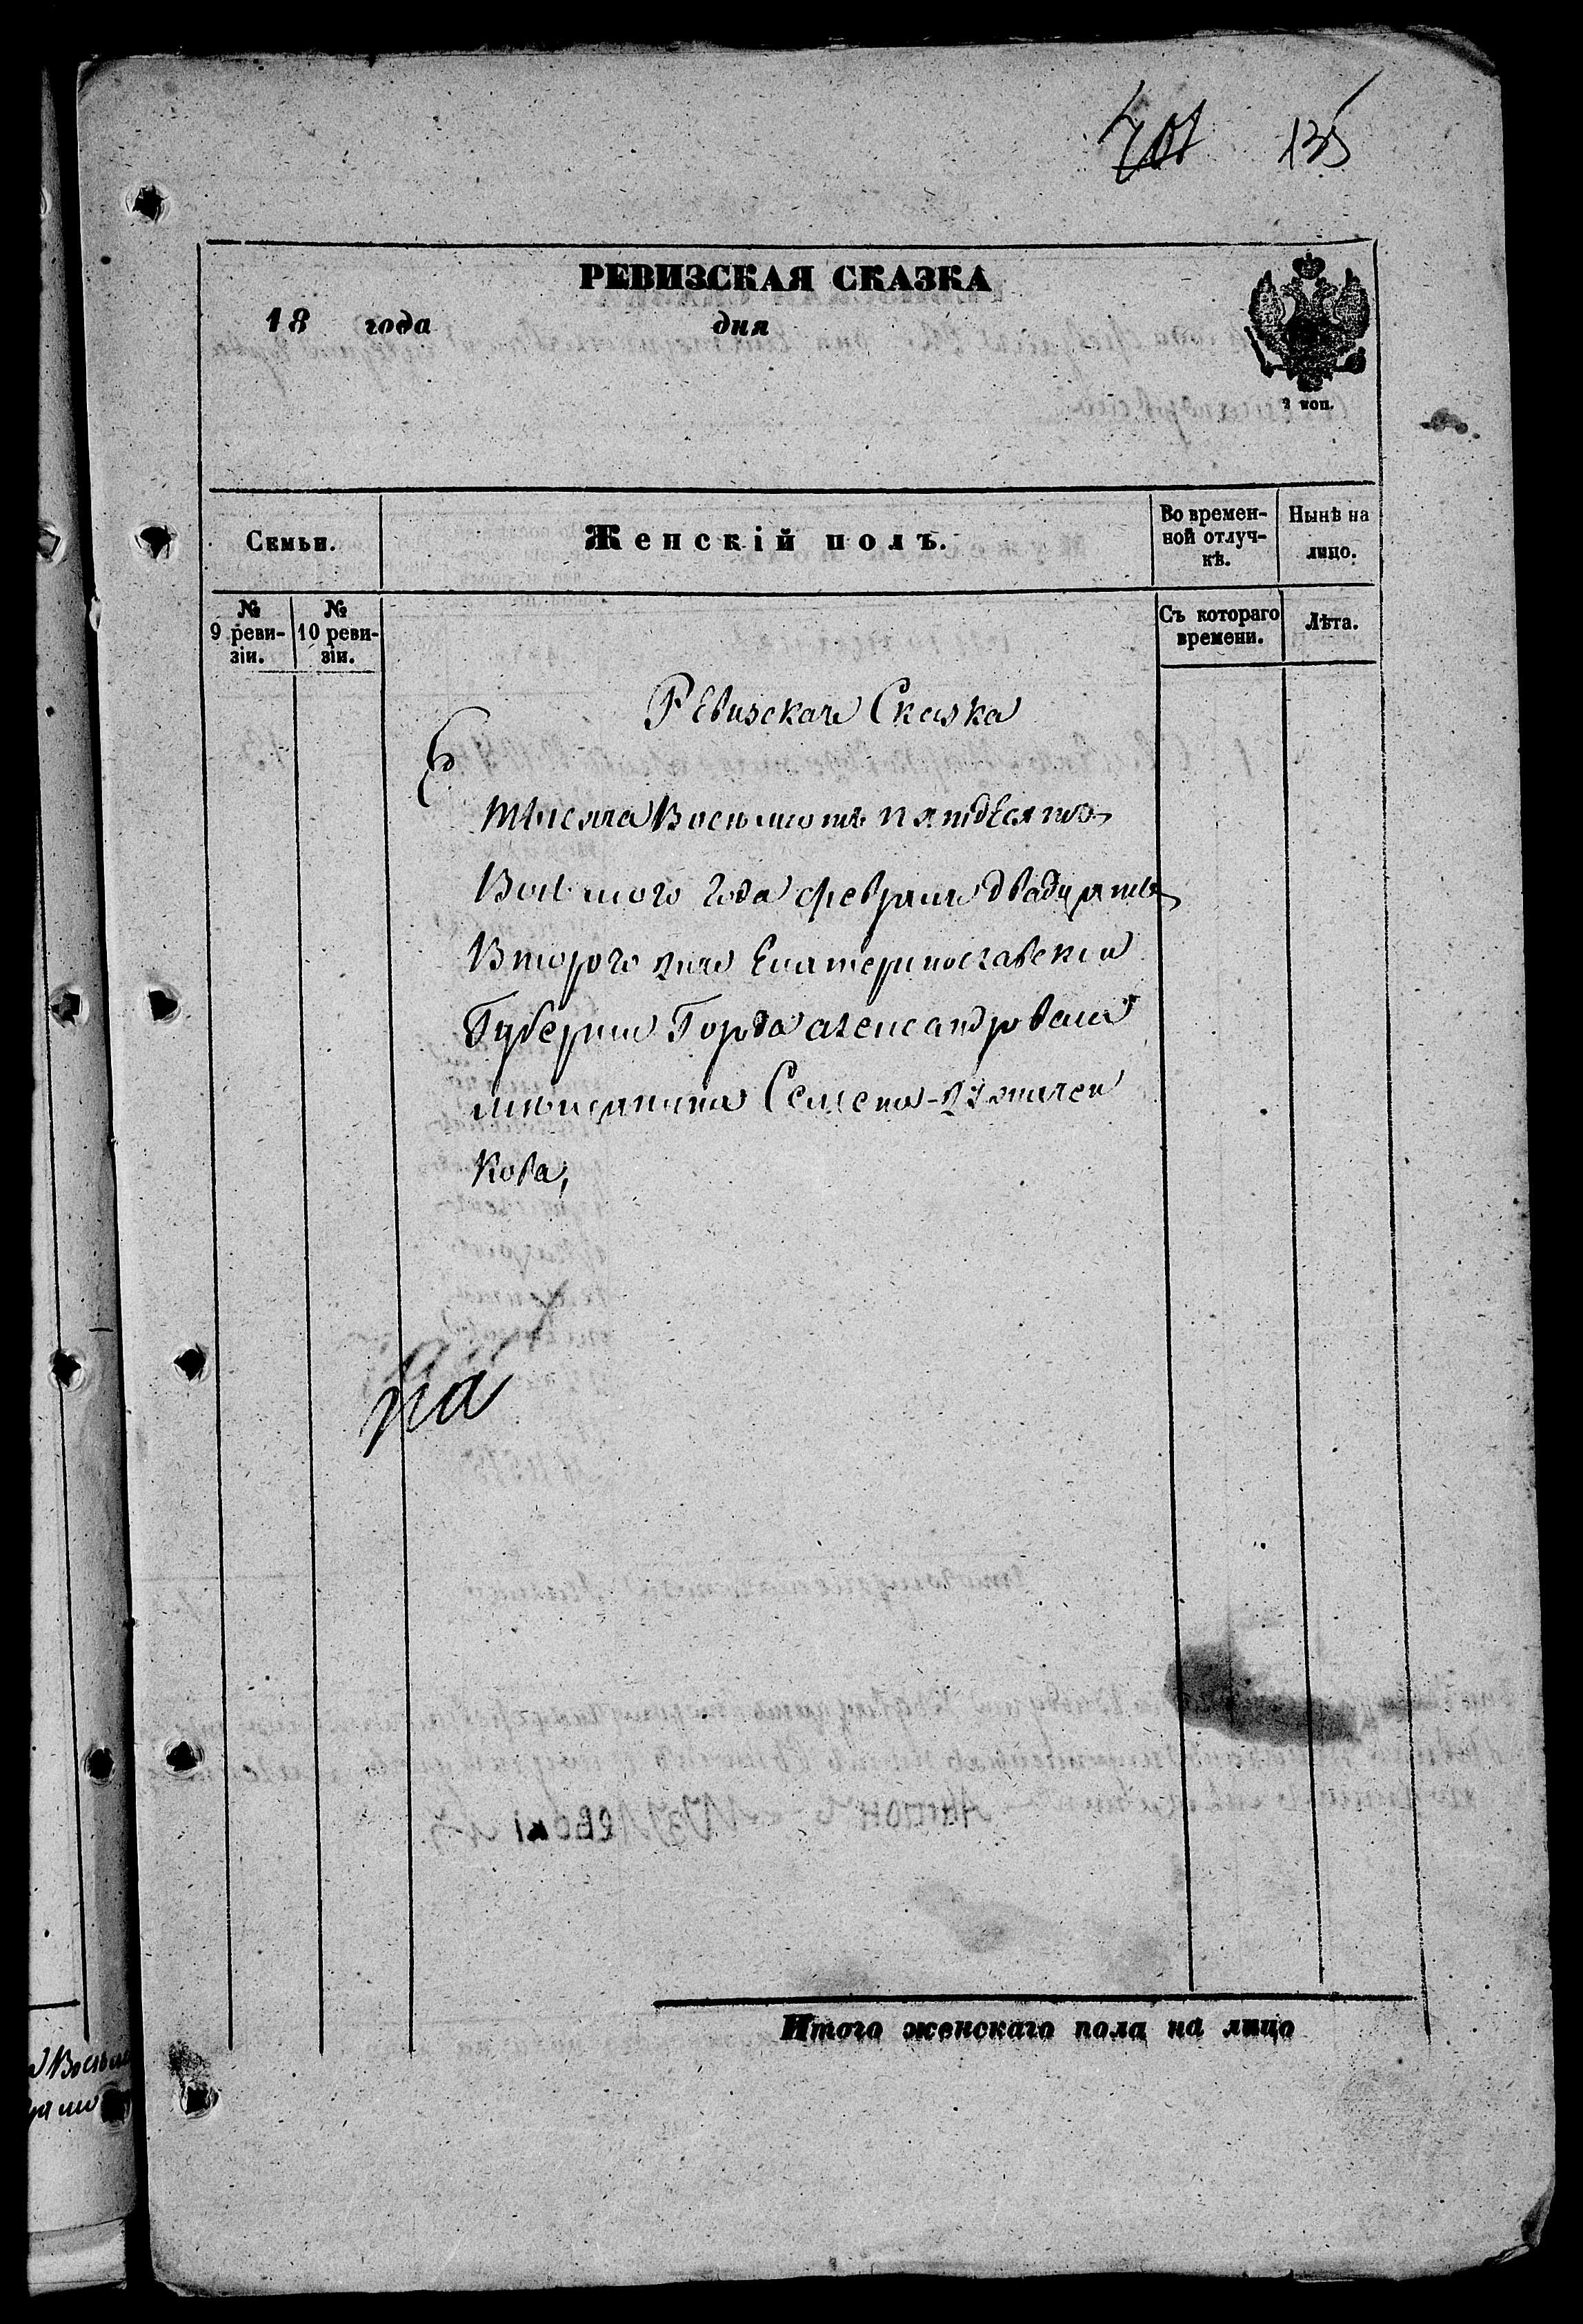 135
РЕВИЗСКАЯ СКАЗКА
18 года дня
2 коп.
Семьи.
Женскій полъ.
Во времен-
ной отлуч-
кѣ.
Нынѣ на
лицо.
№
9 реви-
зіи.
№
10 реви-
зіи.
Съ котораго
времени.
Лѣта.
Ревизская Сказка
тысяча восемьсотъ пятдесятъ
Восьмого года февраля двадцать
Второго дня Екатеринославскія
Губерніи Города Александровска
мѣщанина Семена
кова,
Итого женскаго пола на лицо